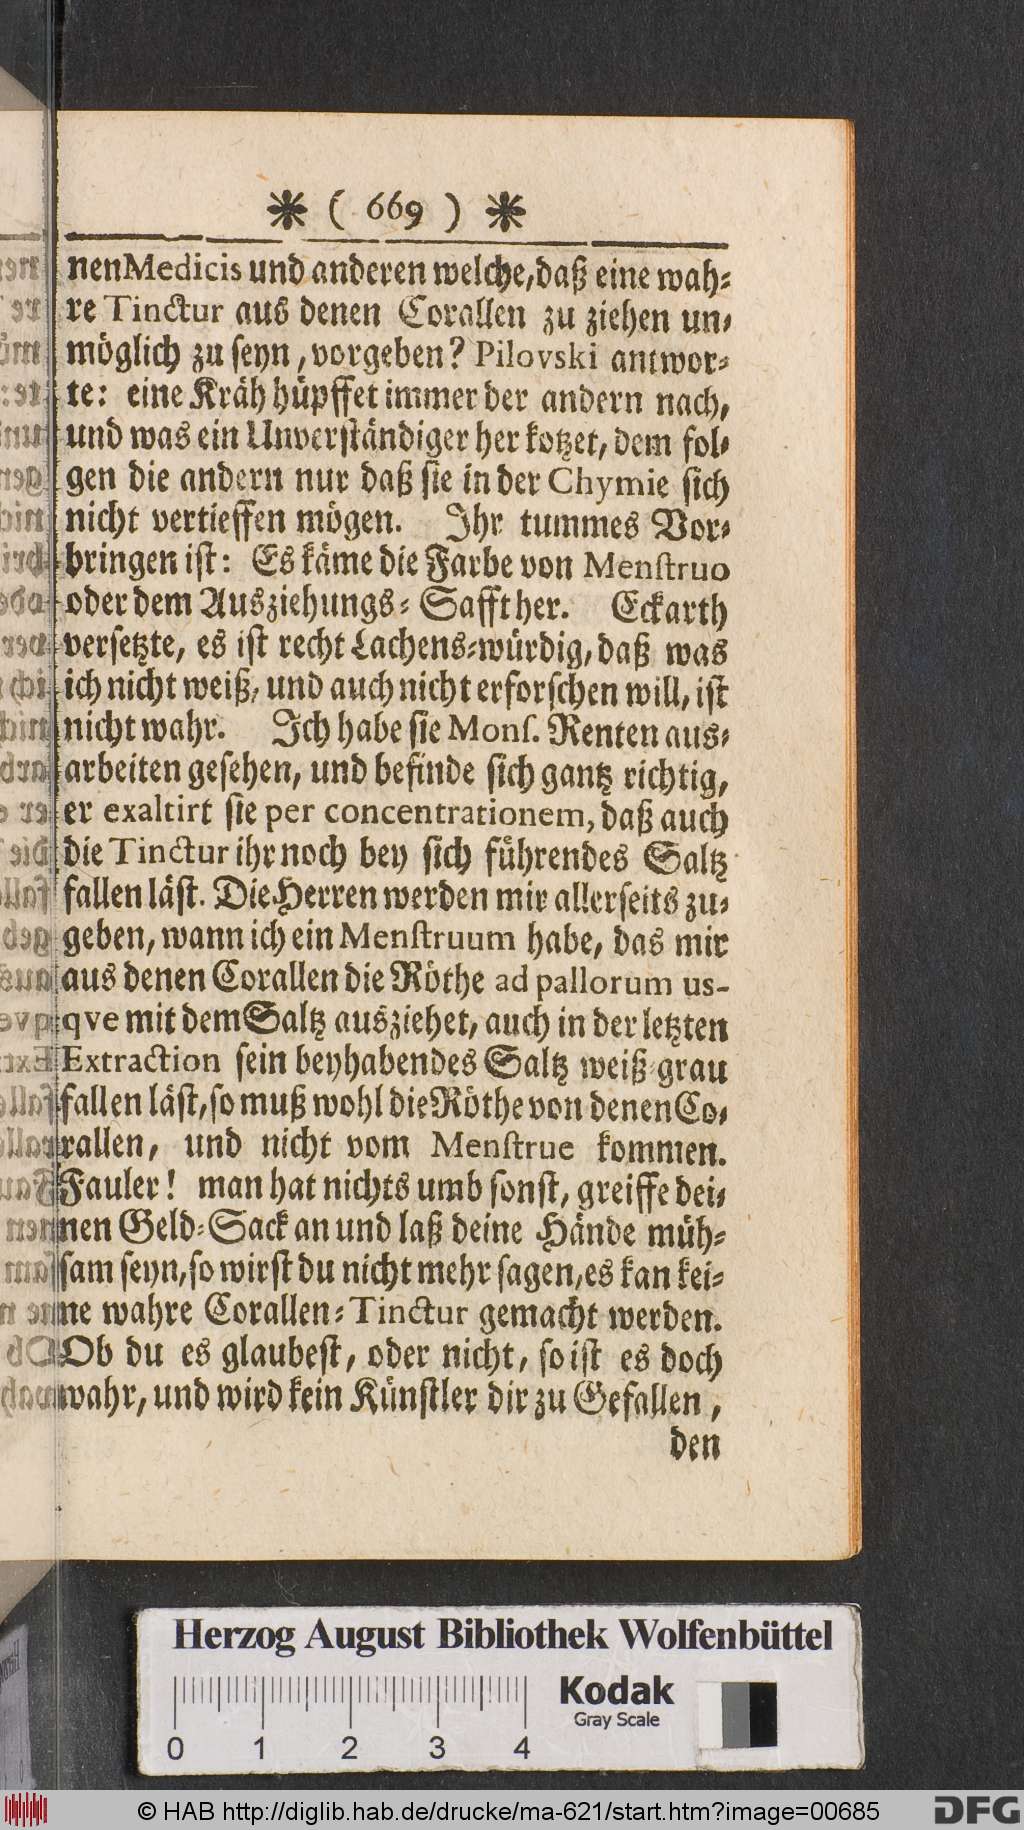 * ( 669 ) *
nen Medicis und anderen welche, daß eine wah-
re Tinctur aus denen Corallen zu ziehen un-
möglich zu seyn, vorgeben? Pilovski antwor-
te: eine Kräh hüpffet immer der andern nach,
und was ein Unverständiger her kotzet, dem fol-
gen die andern nur daß sie in der Chymie sich
nicht vertieffen mögen. Ihr tummes Vor-
bringen ist: Es käme die Farbe von Menstruo
oder dem Ausziehungs-Safft her. Eckarth
versetzte, es ist recht Lachens-würdig, daß was
ich nicht weiß, und auch nicht erforschen will, ist
nicht wahr. Ich habe sie Mons. Renten aus-
arbeiten gesehen, und befinde sich gantz richtig,
er exaltirt sie per concentrationem, daß auch
die Tinctur ihr noch bey sich führendes Saltz
fallen läst. Die Herren werden mir allerseits zu-
geben, wann ich ein Menstruum habe, das mir
aus denen Corallen die Röthe ad pallorum us-
qve mit dem Saltz ausziehet, auch in der letzten
Extraction sein beyhabendes Saltz weiß-grau
fallen läst, so muß wohl die Röthe von denen Co-
rallen, und nicht vom Menstrue kommen.
Fauler! man hat nichts umb sonst, greiffe dei-
nen Geld-Sack an und laß deine Hände müh-
sam seyn, so wirst du nicht mehr sagen, es kan kei-
ne wahre Corallen-Tinctur gemacht werden.
Ob du es glaubest, oder nicht, so ist es doch
wahr, und wird kein Künstler dir zu Gefallen,
den
Herzog August Bibliothek Wolfenbüttel
Kodak
Gray Scale
0 1 2 3 4
© HAB http://diglib.hab.de/drucke/ma-621/start.htm?image=00685
DFG